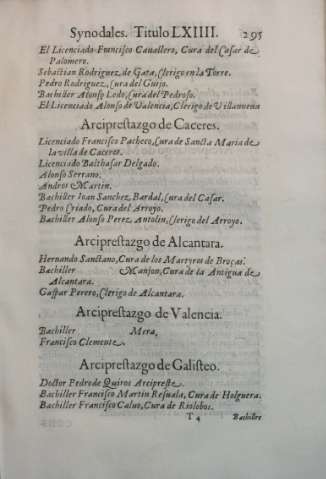 Synodales. Titulo LXIIII. 295
El Licenciado Francisco Cauallero, Cura del Casar de
Palomero.
Sebastian Rodriguez, de Gata, Clerigo en la Torre.
Pedro Rodriguez, Cura del Guijo.
Bachiller Alonso Ledo, Cura del Pedroso.
El Licenciado Alonso de Valencia, Clerigo de Villanueua
Arciprestazgo de Caceres.
Licenciado Francisco Pacheco, Cura de Sancta Maria de
la villa de Caceres.
Licenciado Balthasar Delgado.
Alonso Serrano.
Andres Martin.
Bachiller Iuan Sanchez, Bardal, Cura del Casar.
Pedro Criado, Cura del Arroyo.
Bachiller Alonso Perez, Antolin, Clerigo del Arroyo.
Arciprestazgo de Alcantara.
Hernando Sanctano, Cura de los Martyres de Broças.
Bachiller Manjon, Cura de la Antigua de
Alcantara.
Gaspar Perero, Clerigo de Alcantara.
Arciprestazgo de Valencia.
Bachiller Mera,
Francisco Clemente
Arciprestazgo de Galisteo.
Doctor Pedro de Quiros Arcipreste
Bachiller Francisco Martin Refuala, Cura de Holguera.
Bachiller Francisco Caluo, Cura de Riolobos.
T 4 Bachiller